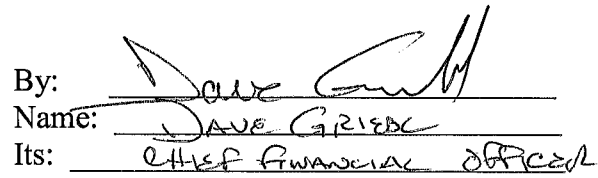 By: Dave
Name: DAVE GRIEBL
Its: CHIEF FINANCIAL OFFICER